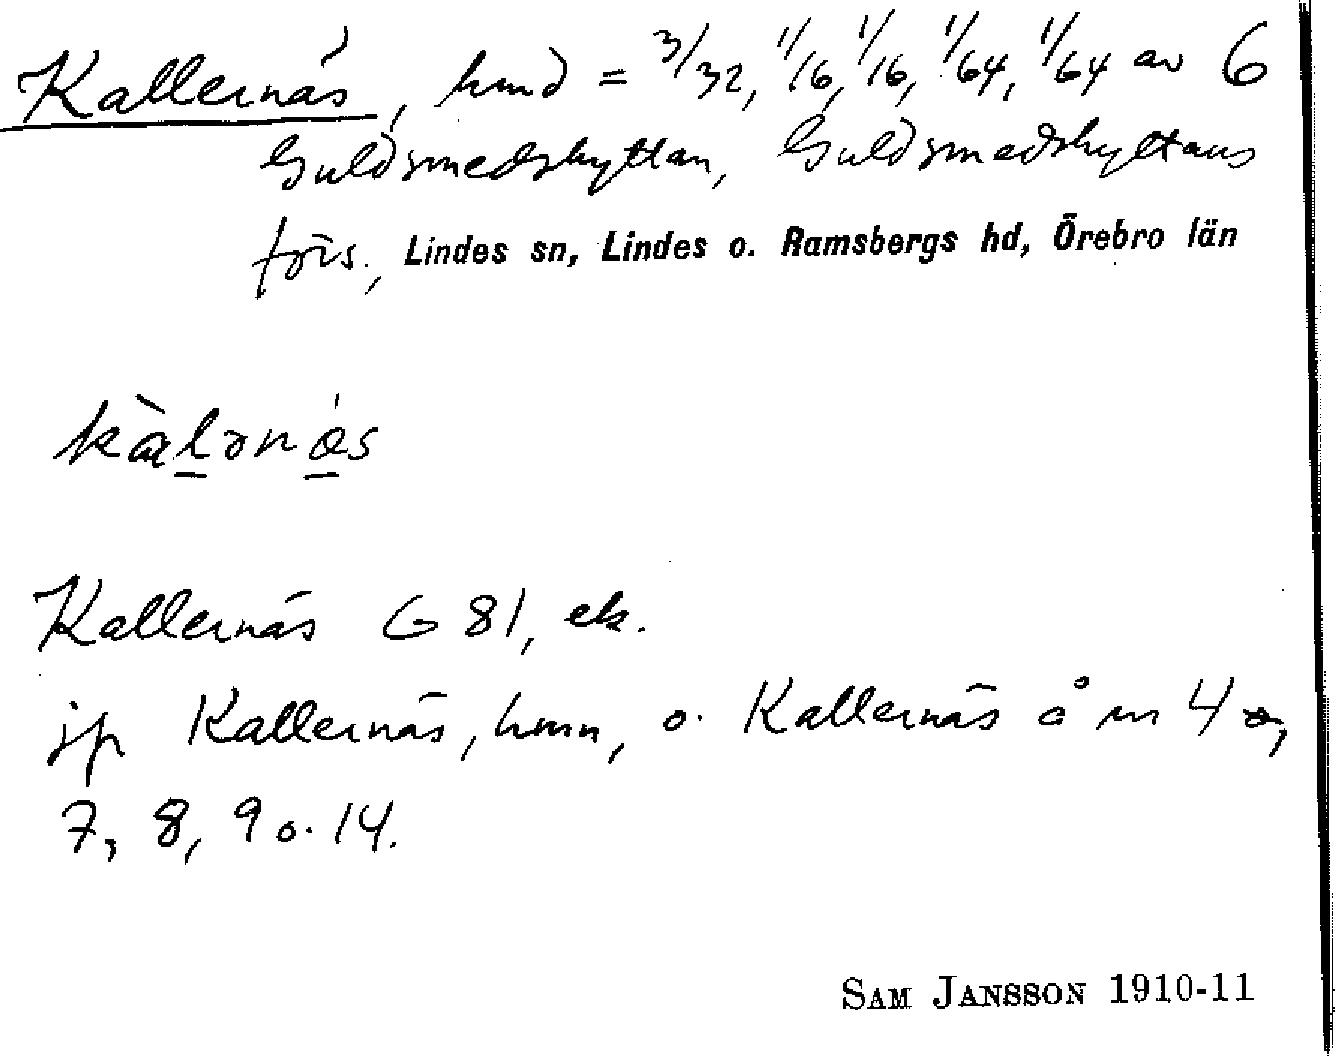 Kallernäs, hmd = 3/32, 1/16, 1/16, 1/64, 1/64 av 6
Guldsmedshyttan, Guldsmedshyttans
förs., Lindes sn, Lindes o. Ramsbergs hd, Örebro län
kàlərnäs
Kallernäs G 81, ek.
jfr Kallernäs, hmn, o. Kallernäs å nr 4
7, 8, 9 o. 14.
SAM JANSSON 1910-11